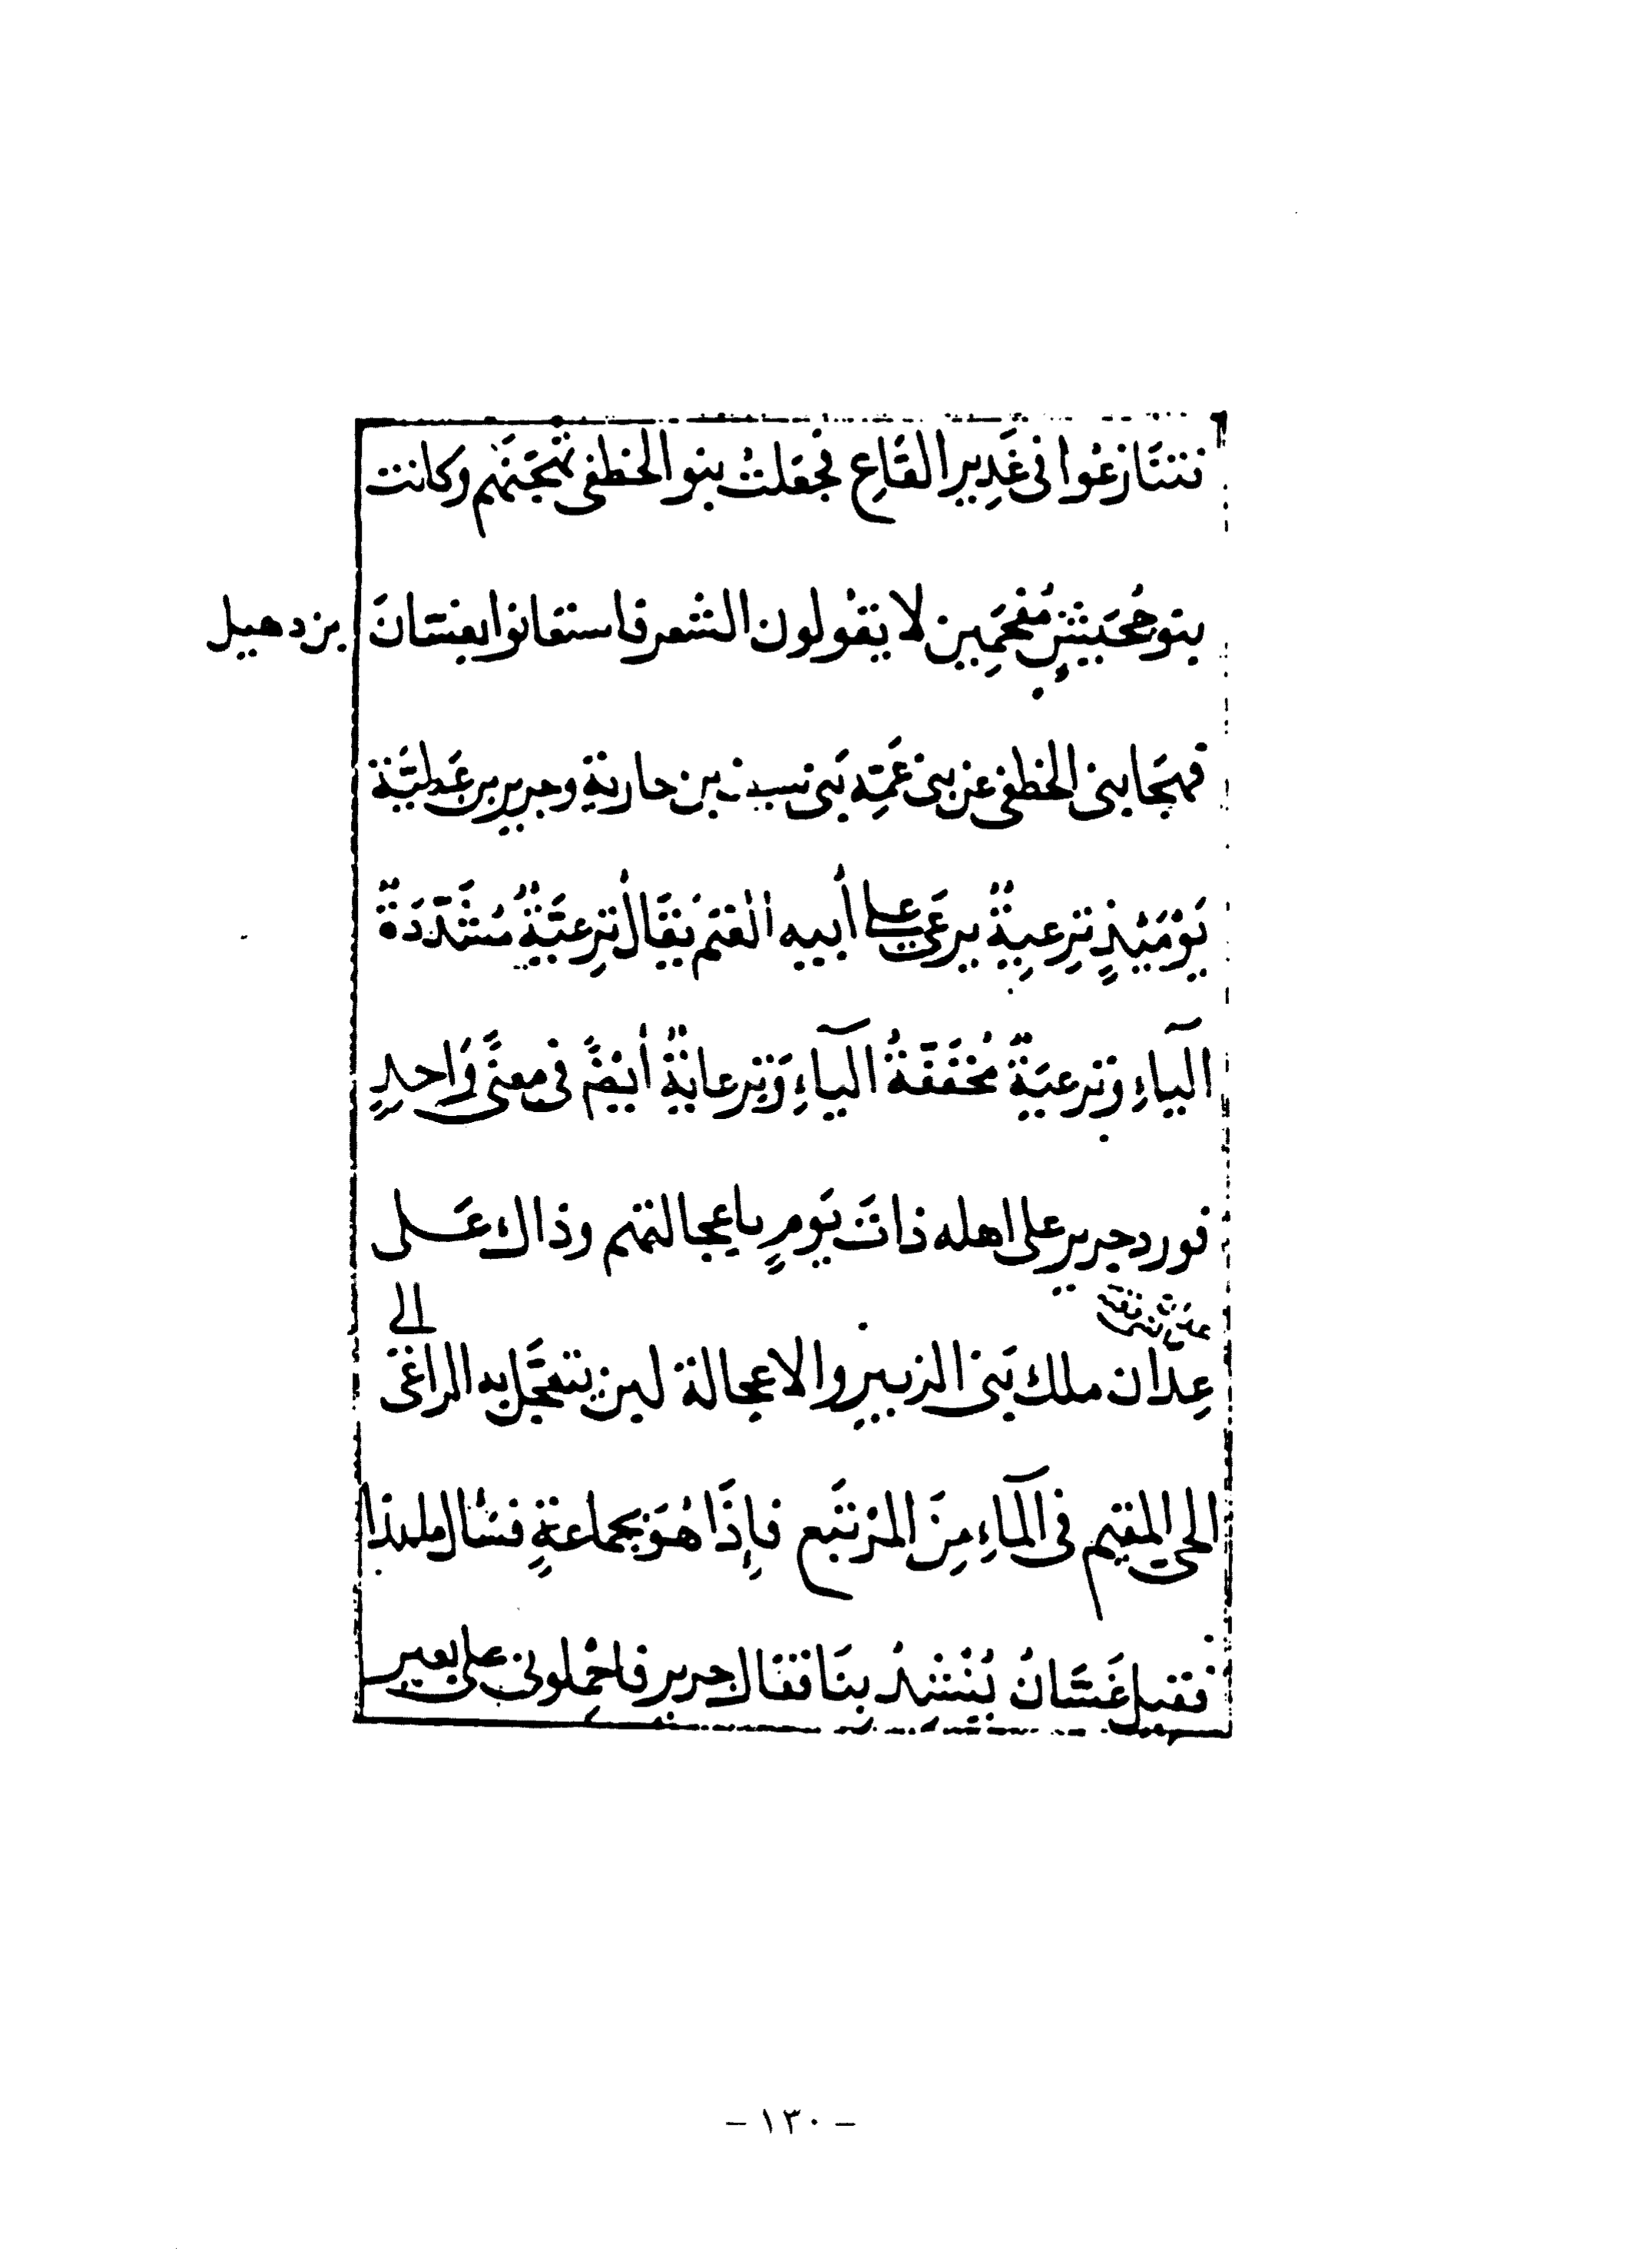 فتنازعوا في غَدِير القَاعِ فجَعَلَتْ بنو الخَطفى تهجمنهم وكانت
بنو جُحَيْشٍ مُفْحَمِين لا يقولون الشعر فاستعانوا بغسّانَ بن ذهيل
فهجَا بنى الخطفى عن بنى عَمِّه بَنِى بن حارثة وجرير بن عَطِيَّة
يَوْمَئِذٍ تِرعِيةٌ يرعَى على أبيه الغنَم يُقَالُ تِرعِيَّةٌ مُشَدَّدَةُ
اليآءِ وَتِرعِيَةٌ مُخَفَّفَةُ اليآءِ وَتِرعايةٌ أيضًا في معنًى وَاحدٍ
فورد جرير على اهله ذاتَ يَومٍ باعجالتهم وذاك عَلى
عِدّان ملك بَنى الزبير والاعجالة لبن يتعجَّل به الراعى الى
الحي المقيم في المآءِ مِنَ المرتَبَع فإِذَا هُوَ بجماعةٍ فسَأل ما هذا
فقيل غَسَّانُ يُنْشِدُ بِنَا فقال جرير فاحْمِلوني على بعير
- ١٣٠ -